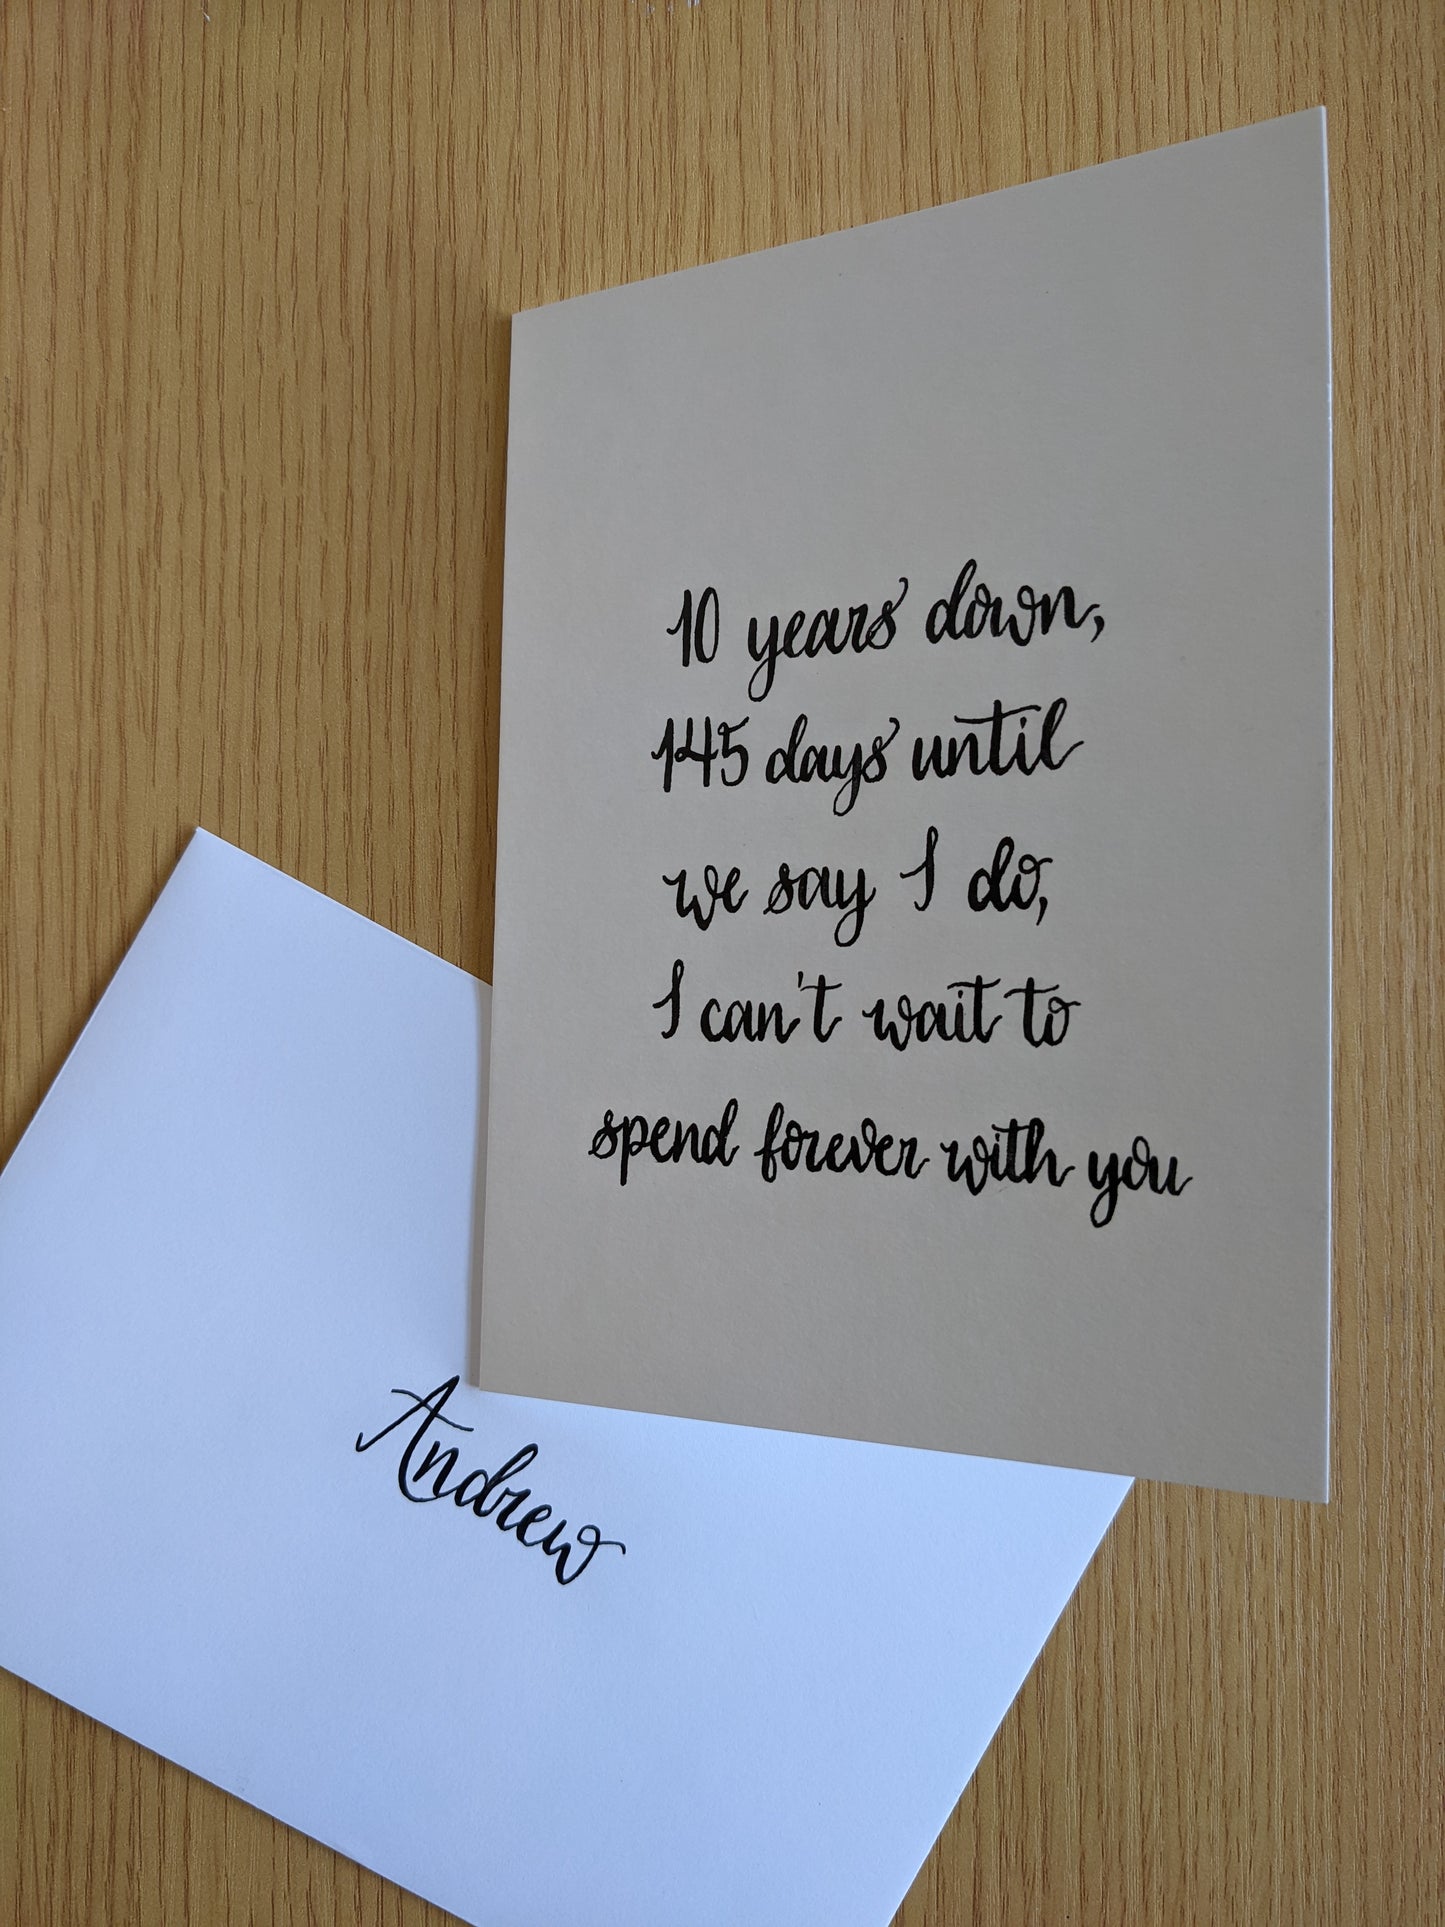 10 years down,
145 days until
we say I do,
I can't wait to
spend forever with you
Andrew